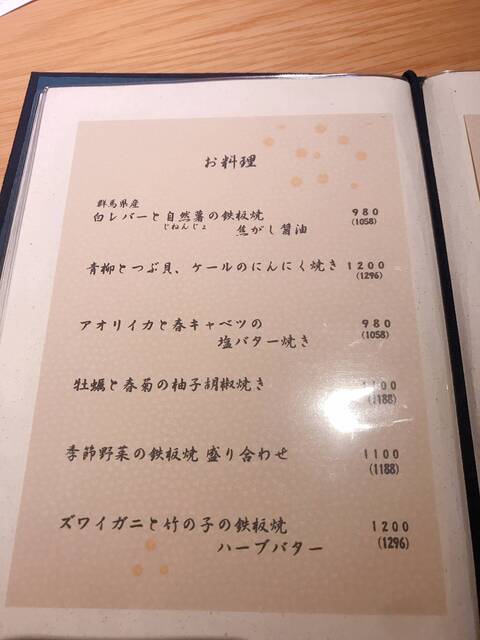 お料理
群馬県産
白レバーと自然薯の鉄板焼 980
じねんじょ 焦がし醤油 (1058)
青柳とつぶ貝、ケールのにんにく焼き 1200
(1296)
アオリイカと春キャベツの 980
塩バター焼き (1058)
牡蠣と春菊の柚子胡椒焼き 1100
(1188)
季節野菜の鉄板焼 盛り合わせ 1100
(1188)
ズワイガニと竹の子の鉄板焼 1200
ハーブバター (1296)